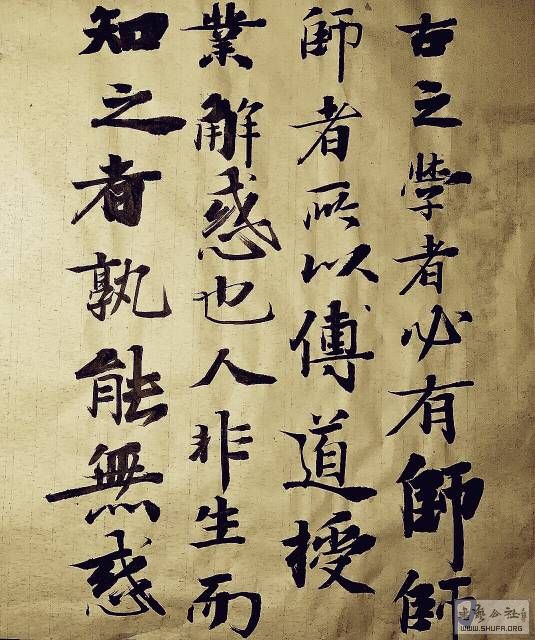 古之學者必有師師
師者所以傳道授
業解惑也人非生而
知之者孰能無惑
公社
WWW.SHUFA.ORG